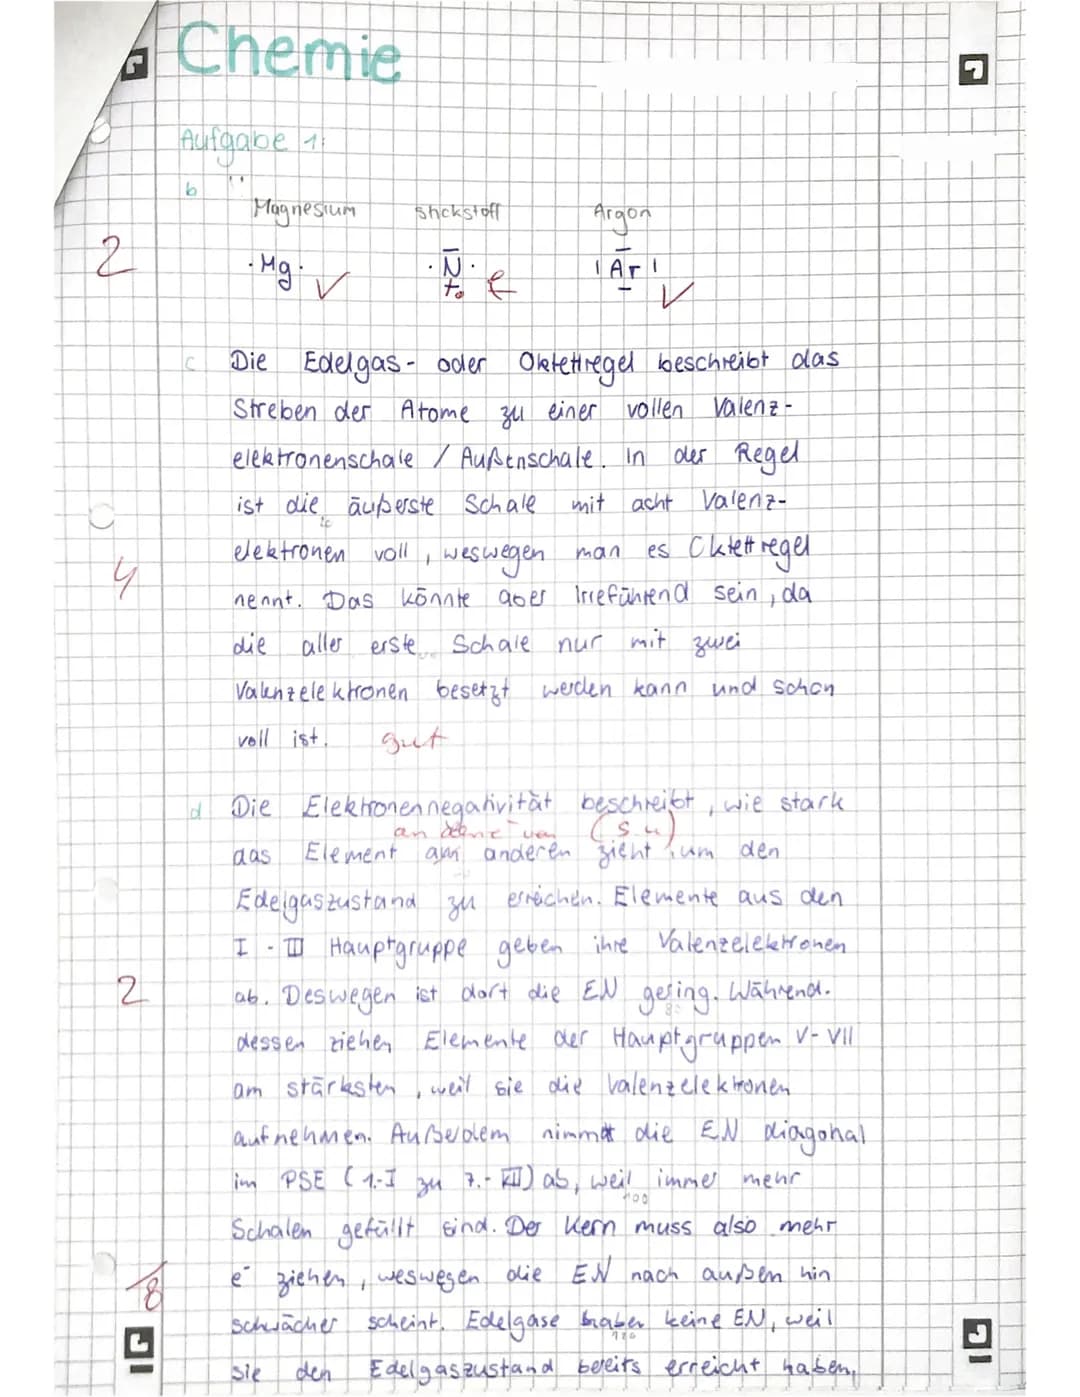 Chemie
Aufgabe 1:
b
Magnesium Stickstoff Argon
2
·Mg· ✓ ·N̅· |A̅r| ✓
c Die Edelgas- oder Oktettregel beschreibt das
Streben der Atome zu einer vollen Valenz-
elektronenschale / Außenschale. In der Regel
ist die äußerste Schale mit acht Valenz-
elektronen voll, weswegen man es Oktettregel
4
nennt. Das könnte aber irreführend sein, da
die aller erste Schale nur mit zwei
Valenzelektronen besetzt werden kann und schon
voll ist. gut
d Die Elektronennegativität beschreibt, wie stark
an von (s.u)
das Element am anderen zieht, um den
Edelgaszustand zu erreichen. Elemente aus den
I - III Hauptgruppe geben ihre Valenzelektronen
2
ab. Deswegen ist dort die EN gering. Während-
dessen ziehen Elemente der Hauptgruppen V-VII
am stärksten, weil sie die Valenzelektronen
aufnehmen. Außerdem nimmt die EN diagonal
im PSE (1.-I zu 7.-VII) ab, weil immer mehr
Schalen gefüllt sind. Der Kern muss also mehr
e⁻ ziehen, weswegen die EN nach außen hin
/8
schwächer scheint. Edelgase haben keine EN, weil
sie den Edelgaszustand bereits erreicht haben,